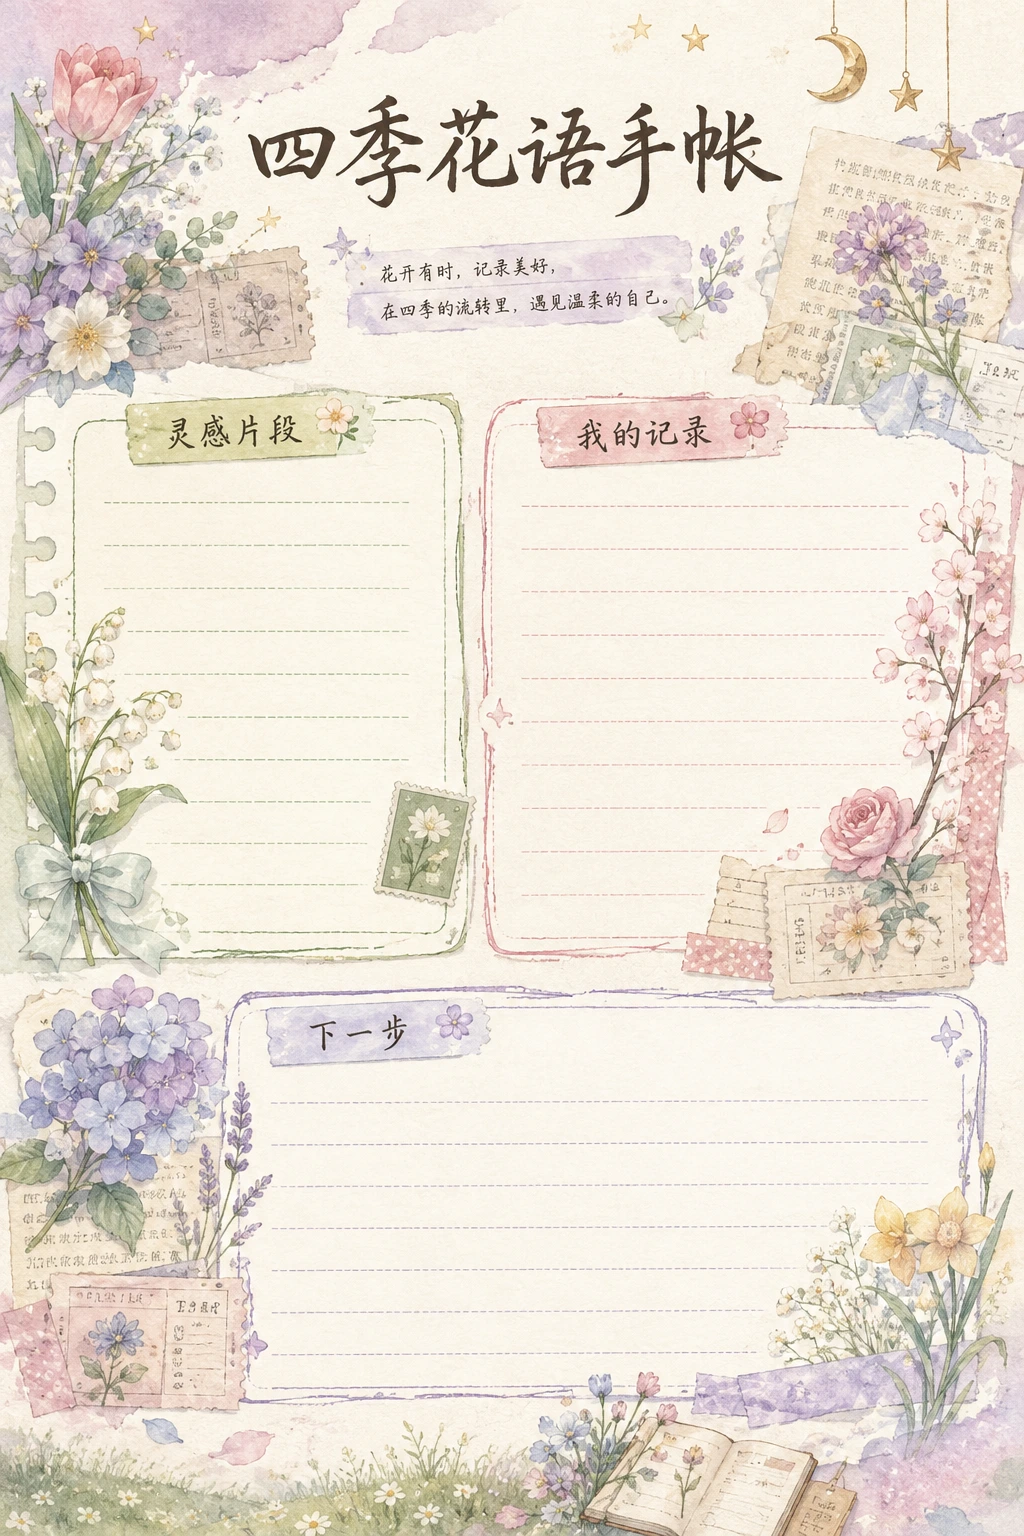 四季花语手帐
花开有时，记录美好，
在四季的流转里，遇见温柔的自己。
灵感片段
我的记录
下一步